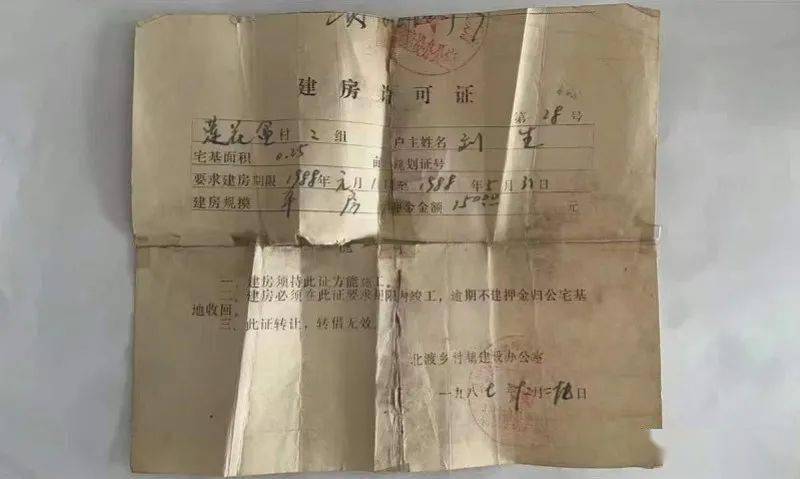 建房许可证
第 28 号
莲花 村 2 组 户主姓名 刘 生
宅基面积 0.25 亩 规划证号
要求建房期限 1988年元月1日至1988年5月31日
建房规模 平房 押金金额 150.00 元
一、建房须持此证方能施工。
二、建房必须在此证要求期限内竣工，逾期不建押金归公宅基
地收回。
三、此证转让，转借无效。
北渡乡村镇建设办公室
一九八七年12月 日